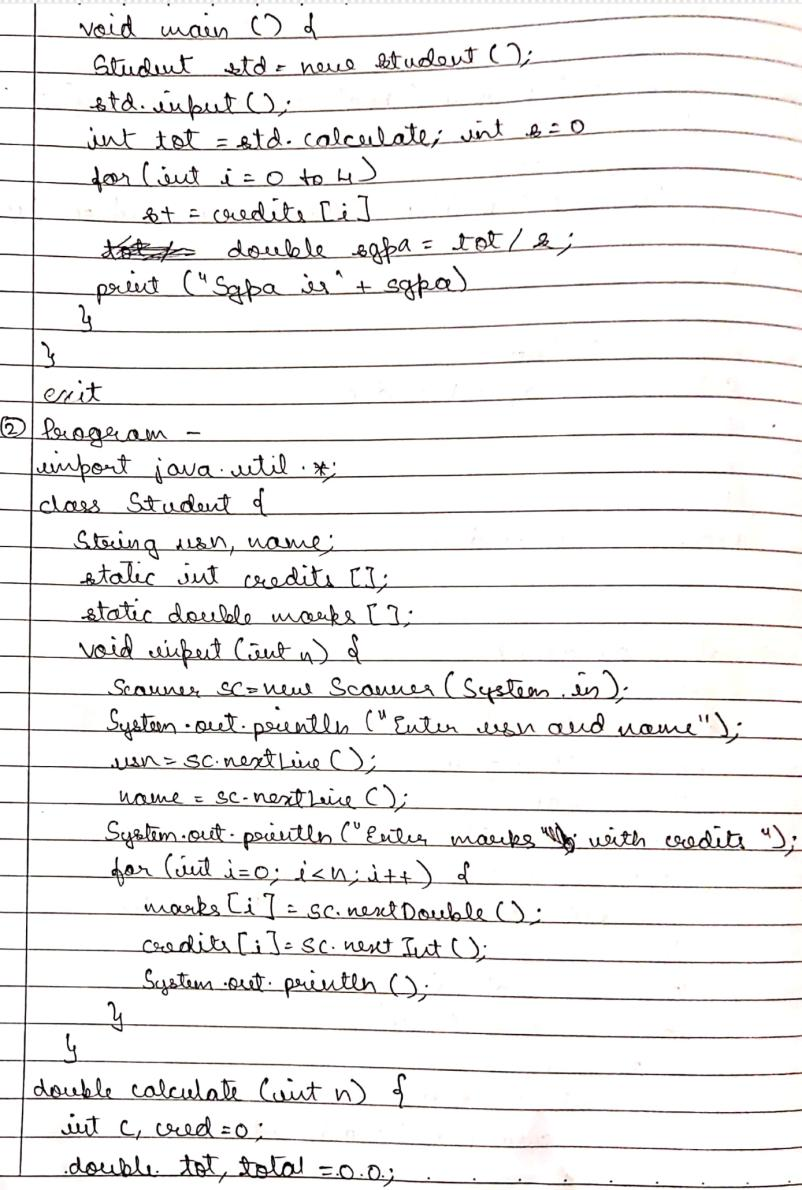 void main () {
Student std = new Student ();
std.input ();
int tot = std.calculate; int s=0
for (int i=0 to 4)
s+ = credits [i]
double sgpa = tot / s;
print ("Sgpa is" + sgpa)
}
}
exit
② Program -
import java.util.*;
class Student {
String usn, name;
static int credits [];
static double marks [];
void input (int n) {
Scanner sc=new Scanner (System.in);
System.out.println ("Enter usn and name");
usn = sc.nextLine ();
name = sc.nextLine ();
System.out.println ("Enter marks with credits ");
for (int i=0; i<n; i++) {
marks [i] = sc.nextDouble ();
credits [i] = sc.nextInt ();
System.out.println ();
}
}
double calculate (int n) {
int c, cred =0;
double tot, total =0.0;